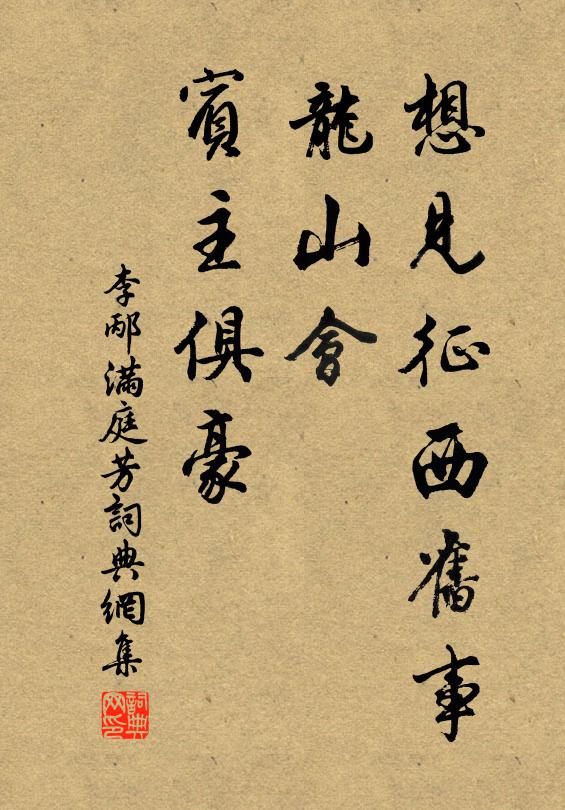 想見征西舊事
龍山會
賓主俱豪
李邴滿庭芳詞典網集
詞典网印